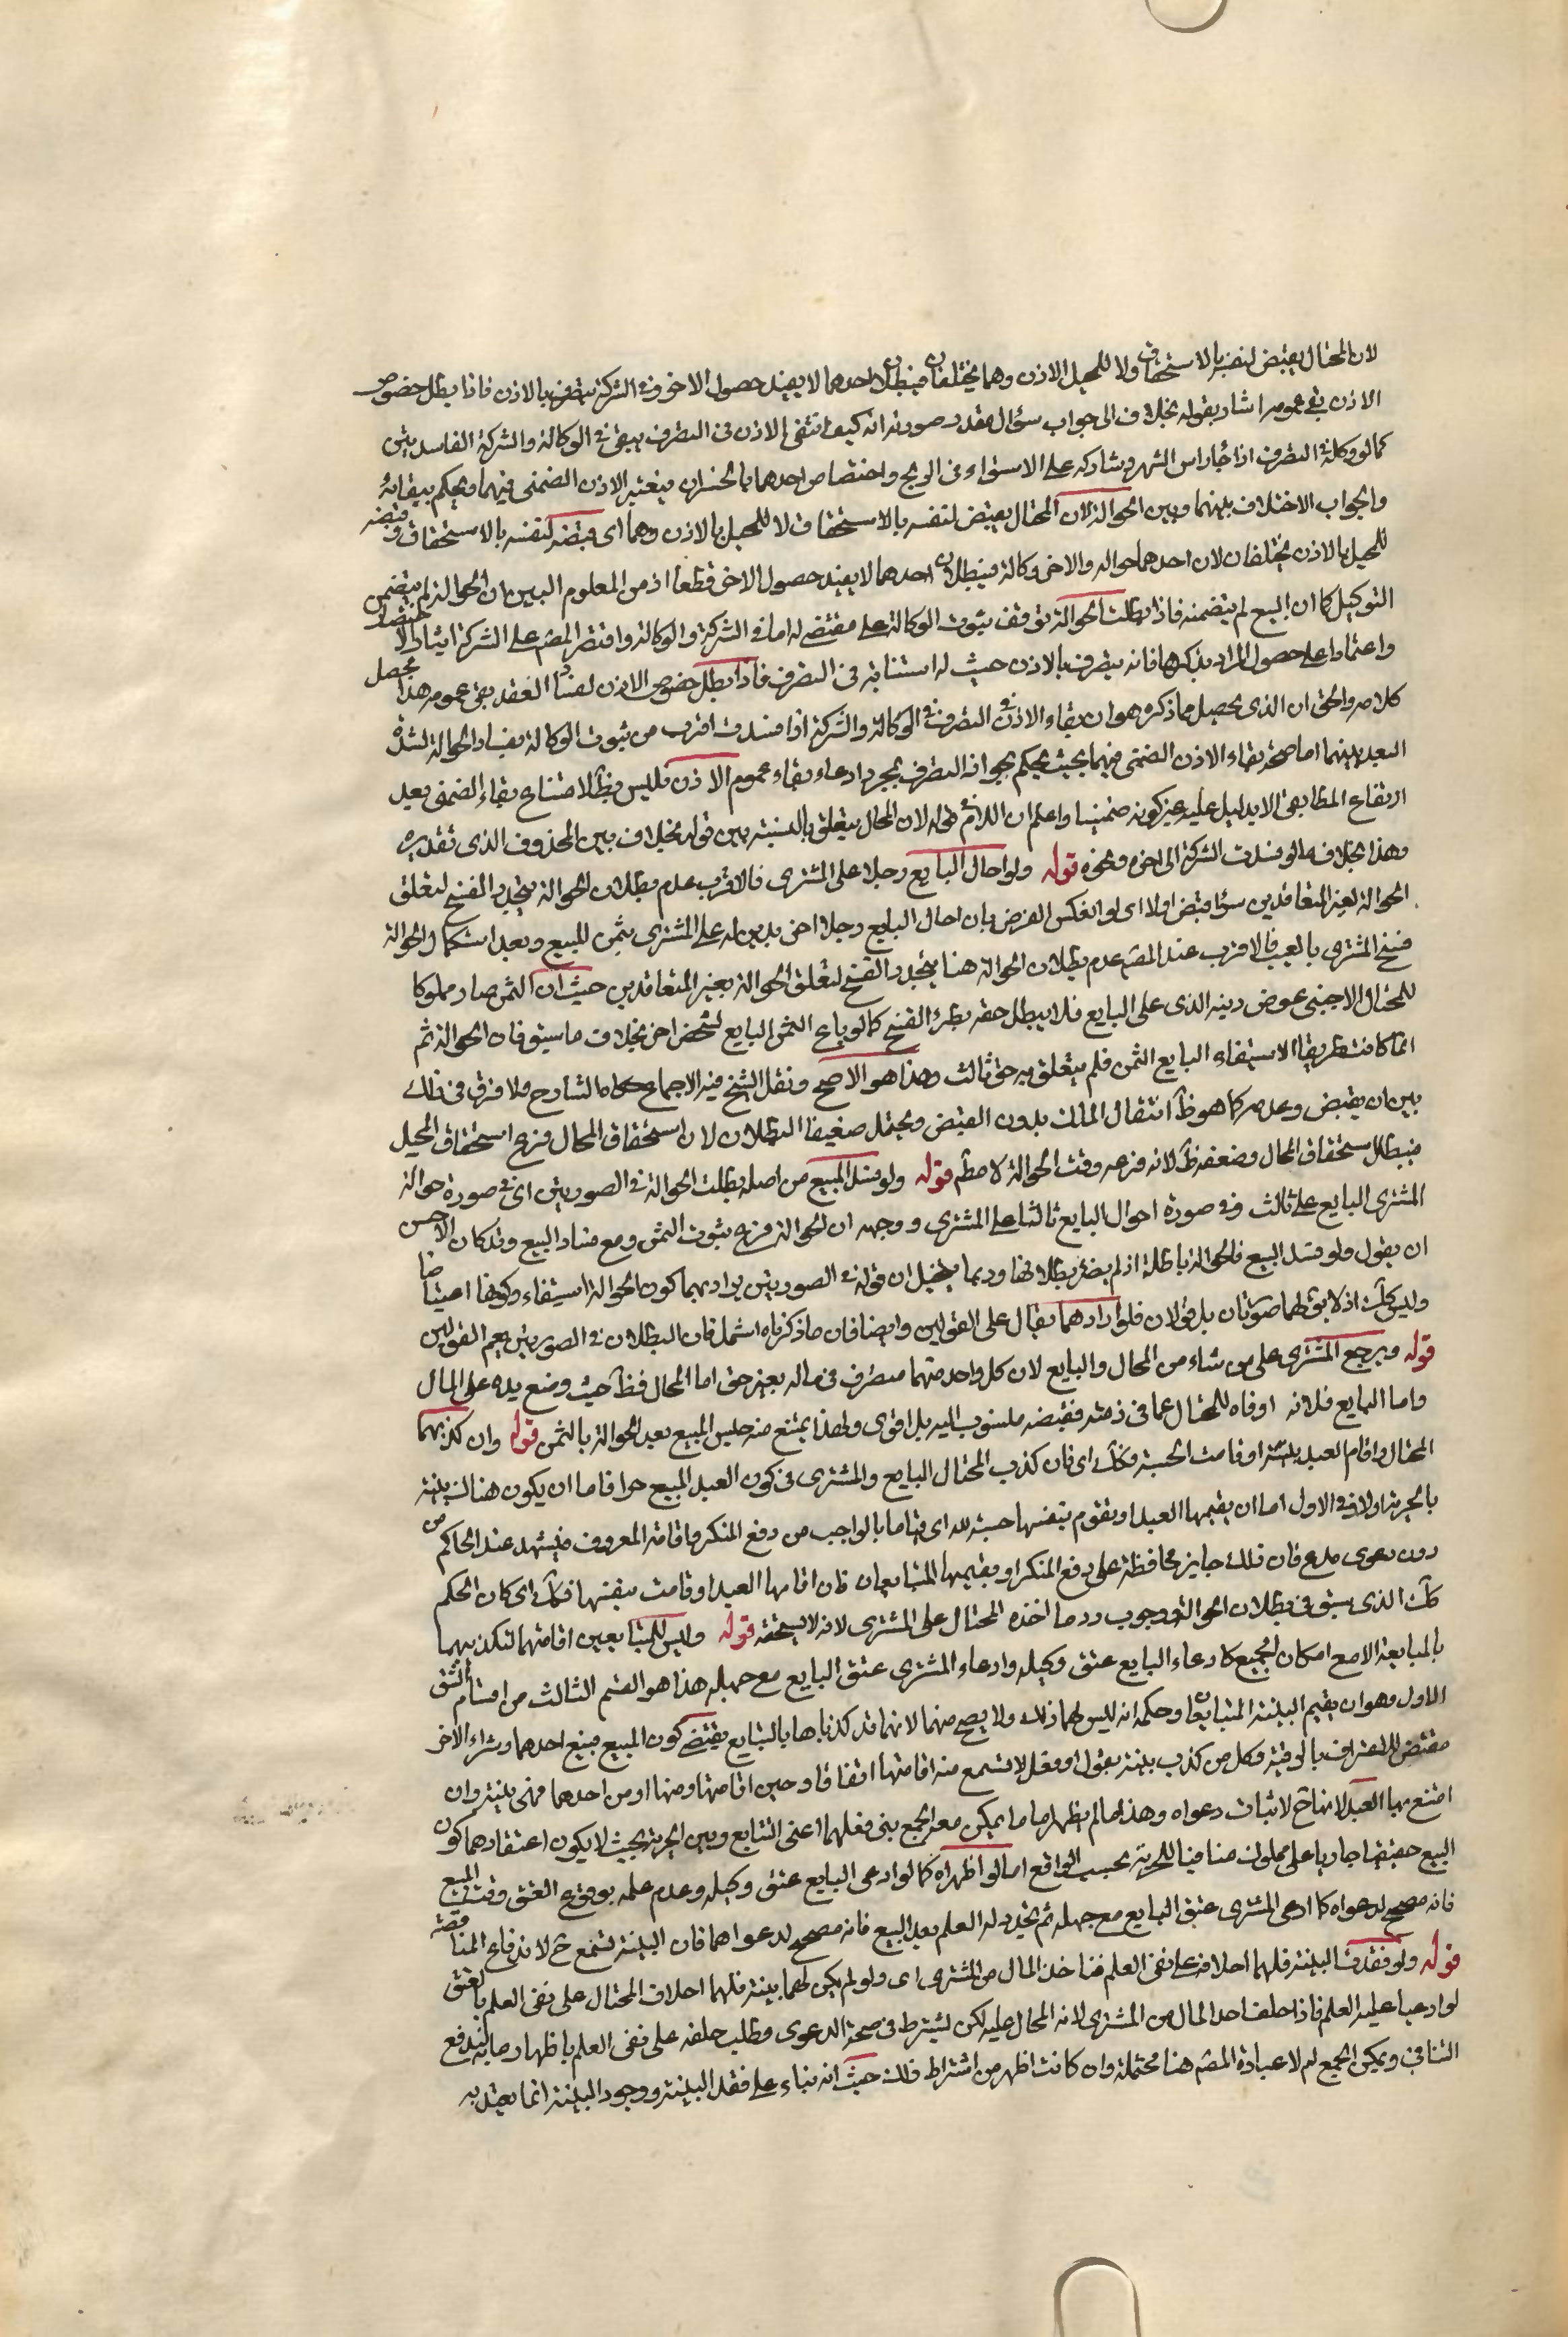 لان المحتال يقبض لنفسه بالاستحقاق ولا للمحيل الاذن وهما مختلفان فبطلان احدهما لا يفيد حصول الاخر وفى الشركة يتصرف بالاذن فاذا بطل خصوص
الاذن بقى عمومه اشار بقوله بخلاف الى جواب سؤال مقدر صورته انه كيف انتفى الاذن فى التصرف يبقى فى الوكالة والشركة الفاسدتين
كما لو وكله فى التصرف اذا جاء راس الشهر وشاركه على الاستواء فى الربح واختصاص احدهما بالخسران فيعتبر الاذن الضمنى فيهما ويحكم ببقائه
والجواب الاختلاف بينهما وبين الحوالة لان المحتال يقبض لنفسه بالاستحقاق لا للمحيل بالاذن وهما اى قبضه لنفسه بالاستحقاق وقبضه
للمحيل بالاذن مختلفان لان احدهما حواله والاخر وكالة فبطلان احدهما لا يفيد حصول الاخر قطعا اذ من المعلوم البين ان الحوالة لم يتضمن
التوكيل كما ان البيع لم يتضمنه فاذا بطلت الحوالة توقف ثبوت الوكالة على مقتضى له اما فى الشركة والوكالة واقتصر المصم على الشركة ايثارا للاختصار
واعتمادا على حصول المراد بذكرها فانه يتصرف بالاذن حيث له استنابة فى التصرف فاذا بطل خصوص الاذن لفساد العقد بقى عمومه هذا محصل
كلامه والحق ان الذى يحصل مما ذكروه هو ان بقاء الاذن فى التصرف فى الوكالة والشركة اذا فسدت اقرب من ثبوت الوكالة بفساد الحوالة لشدة
البعد بينهما اما صحة بقاء الاذن الضمنى فيهما بحيث يحكم بجواز التصرف بمجرد ادعاء بقاء عموم الاذن فليس بظ لامتناع بقاء الضمنى بعد
ارتفاع المطابقى الا بدليل عليه غير كونه ضمنيا واعلم ان اللام فى قوله لان المحال يتعلق بالنسبة بين قوله بخلاف بين المحذوف الذى تقديره
وهذا بخلاف ما لو فسدت الشركة الى اخره ونحوه قوله ولو احال البايع رجلا على المشترى فالاقرب عدم بطلان الحوالة بتجدد الفسخ لتعلق
الحوالة لغير المتعاقدين سواء قبض اولا اى لو انعكس الفرض بان احال البايع رجلا اخر بدين له على المشترى بثمن المبيع وبعد استكمال الحوالة
فسخ المشترى بالعيب فالاقرب عند المصم عدم بطلان الحوالة هنا بتجدد الفسخ لتعلق الحوالة بغير المتعاقدين حيث ان الثمن صار مملوكا
للمحتال الاجنبى عوض دينه الذى على البايع فلا يبطل حقه بطرؤ الفسخ كما لو باع الثمن البايع لشخص اخر بخلاف ما سبق فان الحوالة ثم
انما كانت طريقا لاستيفاء البايع الثمن فلم يتعلق به حق ثالث وهذا هو الاصح ونقل الشيخ فيه الاجماع حكاه الشارح ولا فرق فى ذلك
بين ان يقبض وعدمه كما هو ظ انتقال المالك بدون القبض ويحتمل ضعيفا البطلان لان استحقاق المحال فرع استحقاق المحيل
فبطل استحقاق المحال وضعفه ظ لانه فرعه وقت الحوالة لا مطم قوله ولو فسد المبيع من اصله بطلت الحوالة فى الصورتين اى فى صورة حوالة
المشترى البايع على ثالث وفى صورة احوال البايع ثالثا على المشترى ووجهه ان الحوالة فرع ثبوت الثمن ومع فساد البيع وقد كان الاحسن
ان يقول ولو فسد البيع فالحوالة باطلة اذ لم يضر بطلانها وربما يتخيل ان قوله فى الصورتين يراد بهما كون الحوالة استيفاء وكونها اعتياضا
وليس كك اذ لا بق لهما صورتان بل قولان فلو ارادهما لقال على القولين وايضا فان ما ذكرناه اشمل فان البطلان فى الصورتين يعم القولين
قوله ويرجع المشترى على من شاء من المحال والبايع لان كل واحد منهما متصرف فى ماله بغير حق اما المحال فظ حيث وضع يده على المال
واما البايع فلانه اوفاه للمحتال عما فى ذمته فقبضه منسوب اليه بل اقوى ولهذا يمتنع منه حبس المبيع بعد الحوالة بالثمن قوله وان كذبهما
المحتال واقام العبد بينة او قامت الحسبة فكك اى فان كذب المحتال البايع والمشترى فى كون العبد المبيع حرا فاما ان يكون هناك بينة
بالحرية اولا ففى الاول اما ان يقيمها العبد او تقوم بنفسها حسبة لله اى قياما بالواجب من دفع المنكر واقامة المعروف فيشهد عند الحاكم من
دون دعوى مدع فان ذلك جايز محافظة على دفع المنكر او يقيمها المتبايعان فان اقامها العبد او قامت بنفسها فكك اى كان الحكم
كك الذى سبق فى بطلان الحوالة ووجوب رد ما اخذه المحتال على المشترى لانه لا يستحقه قوله وليس للمتبايعين اقامتها لتكذيبهما
بالمبايعة الا مع امكان الجمع كادعاء البايع عتق وكيله وادعاء المشترى عتق البايع مع جهله هذا هو القسم الثالث من اقسام الشق
الاول وهو ان يقيم البينة المتبايعان وحكمه انه ليس لهما ذلك ولا يصح منهما لانهما قد كذباها بالتبايع يقتضى كون المبيع فبيع احدهما وشراء الاخر
مقتض للاعتراف بالرقية وكل من كذب بينة بقول او فعل لا تسمع منه اقامتها اتفاقا وحين اقامتها ومنها او من احدهما فهى بينة وان
امتنع بها العبد لانها ح لاثبات دعواه وهذا ما لم يظهرا ما يمكن معه الجمع بين فعلهما اعنى التبايع وبين الحرية بحيث لا يكون اعتقادهما كون
البيع حقيقيا جاريا على مملوك منافيا للحرية بحسب الواقع اما لو اظهراه كما لو ادعى البايع عتق وكيله وعدم علمه بوقوع العتق وقت البيع
فانه مصحح لدعواه كما ادعى المشترى عتق البايع مع جهله ثم تجدد له العلم بعد البيع فانه مصحح لدعواهما فان البينة تسمع ح لاندفاع المناقضة
قوله ولو فقدت البينة فلهما احلافه على نفى العلم فناخذ المال من المشترى اى ولو لم يكن لهما بينة فلهما احلاف المحتال على نفى العلم بالعتق
لو ادعيا عليه العلم فاذا حلف اخذ المال من المشترى لانه المحال عليه لكن يشترط فى صحة الدعوى وطلب حلفه على نفى العلم باظهار ما به يندفع
التنافى ويمكن الجمع لم لا عبارة المصم هنا محتملة وان كانت اظهر من اشتراط ذلك حيث انه بناء على فقد البينة ووجود البينة انما يعتد به